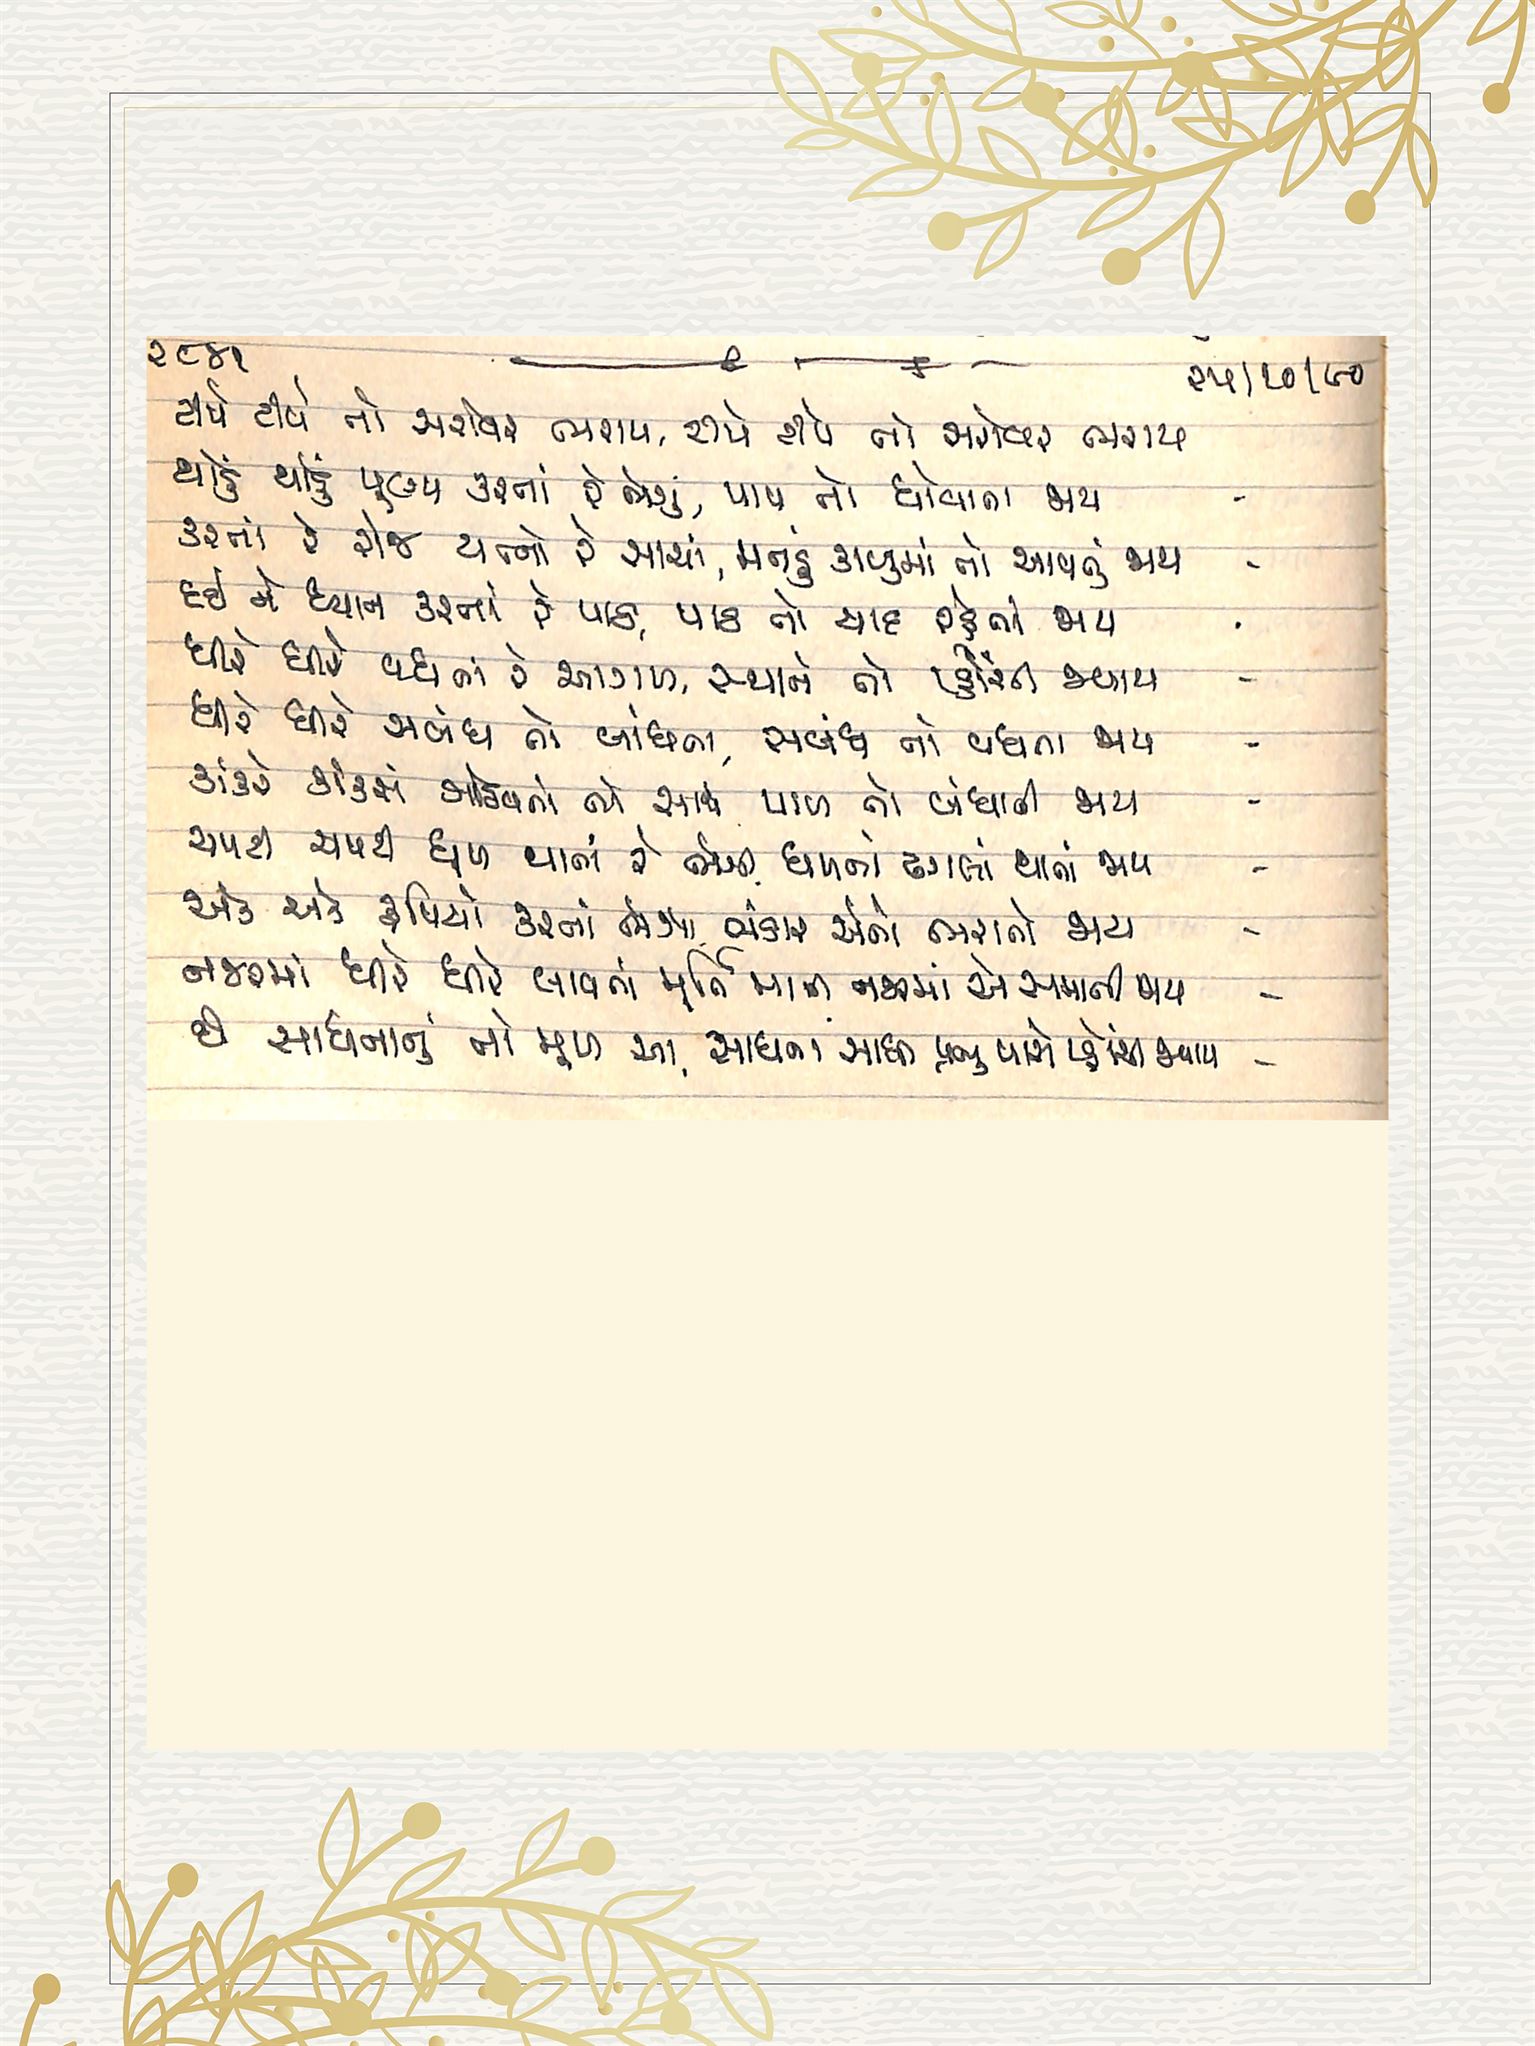 ૨૮૪૧
૨૫/૧૦/૯૦
ટીપે ટીપે તો સરોવર ભરાય, ટીપે ટીપે તો સરોવર ભરાય
થોડું થોડું પુણ્ય કરતાં રે ભેગું, પાપ તો ધોવાતા જાય -
કરતાં રે રોજ યત્નો રે સાચાં, મનડું કાબુમાં તો આવતું જાય -
દઈ ને ધ્યાન કરતાં રે પાઠ, પાઠ તો યાદ રહેતાં જાય .
ધીરે ધીરે વધતાં રે આગળ, સ્થાને તો પહોંચી જવાય -
ધીરે ધીરે સબંધ તો બાંધતા, સબંધ તો વધતા જાય -
કાંકરે કાંકરા ગોઠવતાં તો સાથે પાળ તો બંધાતી જાય -
ચપટી ચપટી ધૂળ થાતાં રે ભેગી, ધૂળનો ઢગલો થાતાં જાય -
એક એક રૂપિયો કરતાં ભેગા, ભંડાર એનો ભરાતો જાય -
નજરમાં ધીરે ધીરે લાવતાં મૂર્તિ માની નજરમાં એ સમાતી જાય -
છે સાધનાનું તો મૂળ આ, સાધના સાધી પ્રભુ પાસે પહોંચી જવાય -